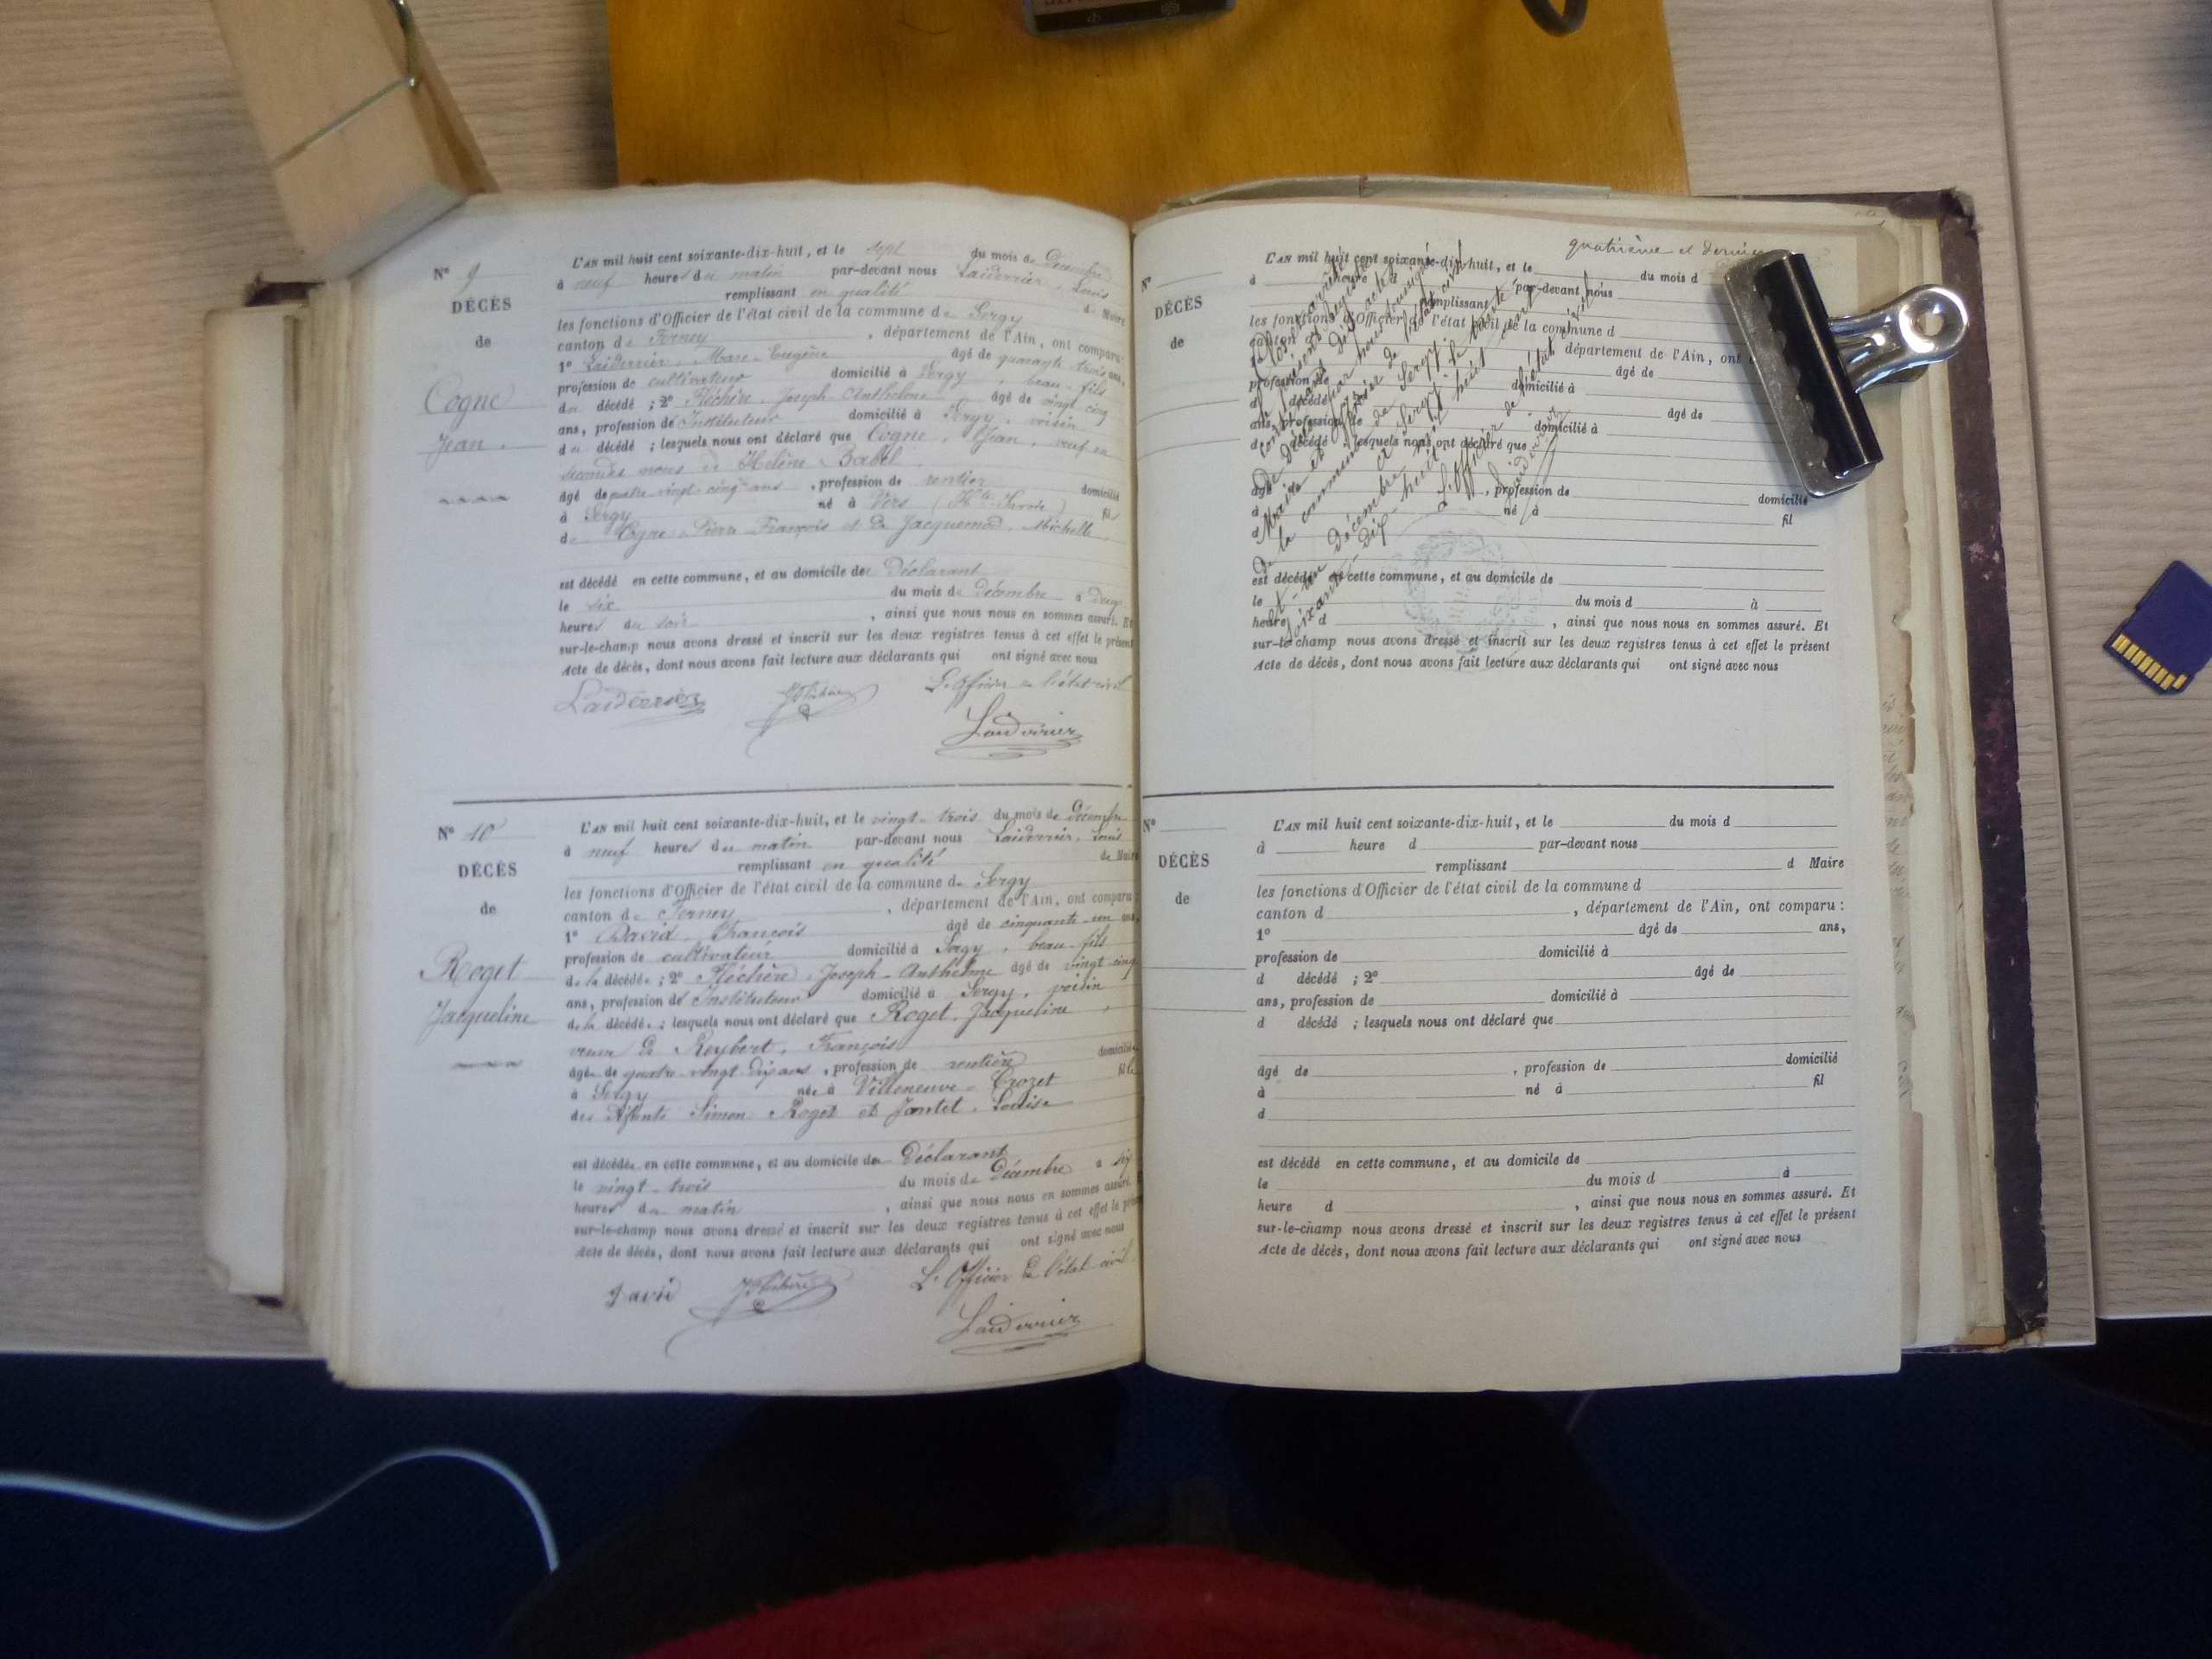 N° 9
DÉCÈS
de
Cogne
Jean.
L'AN mil huit cent soixante-dix-huit, et le sept du mois de Décembre
à neuf heures du matin par-devant nous Laiderrier, Louis
remplissant en qualité de Maire
les fonctions d'Officier de l'état civil de la commune de Sergy
canton de Ferney, département de l'Ain, ont comparu:
1° Laiderrier, Marc-Eugène âgé de quarante trois ans,
profession de cultivateur domicilié à Sergy, beau-fils
du décédé; 2° Fléchère, Joseph-Anthelme âgé de vingt cinq
ans, profession de Instituteur domicilié à Sergy, voisin
du décédé; lesquels nous ont déclaré que Cogne, Jean, veuf en
secondes noces de Hélène Babel
âgé de quatre-vingt-cinq ans, profession de rentier domicilié
à Sergy né à Vers (Hte-Savoie) fils
de Cogne Pierre François et de Jacquemod, Michelle,
est décédé en cette commune, et au domicile de Déclarant
le six du mois de décembre à deux
heures du soir, ainsi que nous nous en sommes assuré. Et
sur-le-champ nous avons dressé et inscrit sur les deux registres tenus à cet effet le présent
Acte de décès, dont nous avons fait lecture aux déclarants qui ont signé avec nous
L'Officier de l'état civil
Laiderrier
Laiderrier
N° 10
DÉCÈS
de
Roget
Jacqueline
L'AN mil huit cent soixante-dix-huit, et le vingt-trois du mois de décembre
à neuf heures du matin par-devant nous Laiderrier, Louis
remplissant en qualité de Maire
les fonctions d'Officier de l'état civil de la commune de Sergy
canton de Ferney, département de l'Ain, ont comparu:
1° David, François âgé de cinquante-un ans,
profession de cultivateur domicilié à Sergy, beau-fils
de la décédée; 2° Fléchère, Joseph-Anthelme âgé de vingt-cinq
ans, profession de Instituteur domicilié à Sergy, voisin
de la décédée; lesquels nous ont déclaré que Roget, Jacqueline,
veuve de Reybert, François
âgée de quatre-vingt-dix ans, profession de rentière domiciliée
à Sergy née à Villeneuve-Crozet fille
des défunts Simon Roget et Jantet, Louise
est décédée en cette commune, et au domicile du Déclarant
le vingt-trois du mois de Décembre à six
heures du matin, ainsi que nous nous en sommes assuré. Et
sur-le-champ nous avons dressé et inscrit sur les deux registres tenus à cet effet le présent
Acte de décès, dont nous avons fait lecture aux déclarants qui ont signé avec nous
L'Officier de l'état civil
David
Laiderrier
quatrième et dernier
N°
DÉCÈS
de
L'AN mil huit cent soixante-dix-huit, et le du mois d
à heure d par-devant nous
remplissant
les fonctions d'Officier de l'état civil de la commune d
canton d, département de l'Ain, ont
1° âgé de
profession de domicilié à
d décédé; 2° âgé de
ans, profession de domicilié à
d décédé; lesquels nous ont déclaré que
âgé de, profession de domicilié
à né à fil
d
est décédé en cette commune, et au domicile de
le du mois d à
heure d, ainsi que nous nous en sommes assuré. Et
sur-le-champ nous avons dressé et inscrit sur les deux registres tenus à cet effet le présent
Acte de décès, dont nous avons fait lecture aux déclarants qui ont signé avec nous
Maire et officier de l'état civil
de la commune de Sergy
à Sergy le trente
et-un décembre mil huit cent
soixante-dix-huit
L'officier de l'état civil
Laiderrier
N°
DÉCÈS
de
L'AN mil huit cent soixante-dix-huit, et le du mois d
à heure d par-devant nous
remplissant d Maire
les fonctions d'Officier de l'état civil de la commune d
canton d, département de l'Ain, ont comparu:
1° âgé de ans,
profession de domicilié à
d décédé; 2° âgé de
ans, profession de domicilié à
d décédé; lesquels nous ont déclaré que
âgé de, profession de domicilié
à né à fil
d
est décédé en cette commune, et au domicile de
le du mois d à
heure d, ainsi que nous nous en sommes assuré. Et
sur-le-champ nous avons dressé et inscrit sur les deux registres tenus à cet effet le présent
Acte de décès, dont nous avons fait lecture aux déclarants qui ont signé avec nous